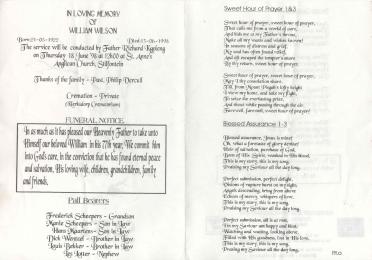 IN LOVING MEMORY
OF
WILLIAM WILSON
Born 21-05-1922
Died 13-06-1998
The service will be conducted by Father Richard
on Thursday 18 June 98 at 13h00 at St. Anne's
Anglican Church, Stilfontein
Thanks of the family - Past. Philip Dercell
Cremation - Private
(Klerksdorp Crematorium)
FUNERAL NOTICE
In as much as it has pleased our Heavenly Father to take unto
Himself our beloved William in his 77th year, We commit him
Into God's care, in the conviction that he has found eternal peace
and salvation, His loving wife, children, grandchildren, family
and friends.
Pall Bearers
Frederick Scheepers - Grandson
Manie Scheepers - Son in Law
Hans Harmann - Son in Law
Dick Wentzel - Brother in Law
Louis Bekker - Brother in Law
Les Lotter - Nephew
Sweet Hour of Prayer 1&3
Sweet hour of prayer, sweet hour of prayer,
That calls me from a world of care,
And bids me at my Father's throne,
Make all my wants and wishes known!
In seasons of distress and grief,
My soul has often found relief,
And oft escaped the tempter's snare
By thy return, sweet hour of prayer.
Sweet hour of prayer, sweet hour of prayer,
May I thy consolation share,
Till, from Mount Pisgah's lofty height
I view my home, and take my flight,
To seize the everlasting prize,
And shout while passing through the air,
Farewell, farewell, sweet hour of prayer!
Blessed Assurance 1-3
Blessed assurance, Jesus is mine!
Oh, what a foretaste of glory divine!
Heir of salvation, purchase of God,
Born of His Spirit, washed in His blood,
This is my story, this is my song,
Praising my Saviour all the day long.
Perfect submission, perfect delight,
Visions of rapture burst on my sight,
Angels descending, bring from above
Echoes of mercy, whispers of love,
This is my story, this is my song,
Praising my Saviour all the day long.
Perfect submission, all is at rest,
I'm my Saviour am happy and blest,
Watching and waiting, looking above,
Filled with His goodness, lost in His love,
This is my story, this is my song,
Praising my Saviour all the day long.
P.t.o